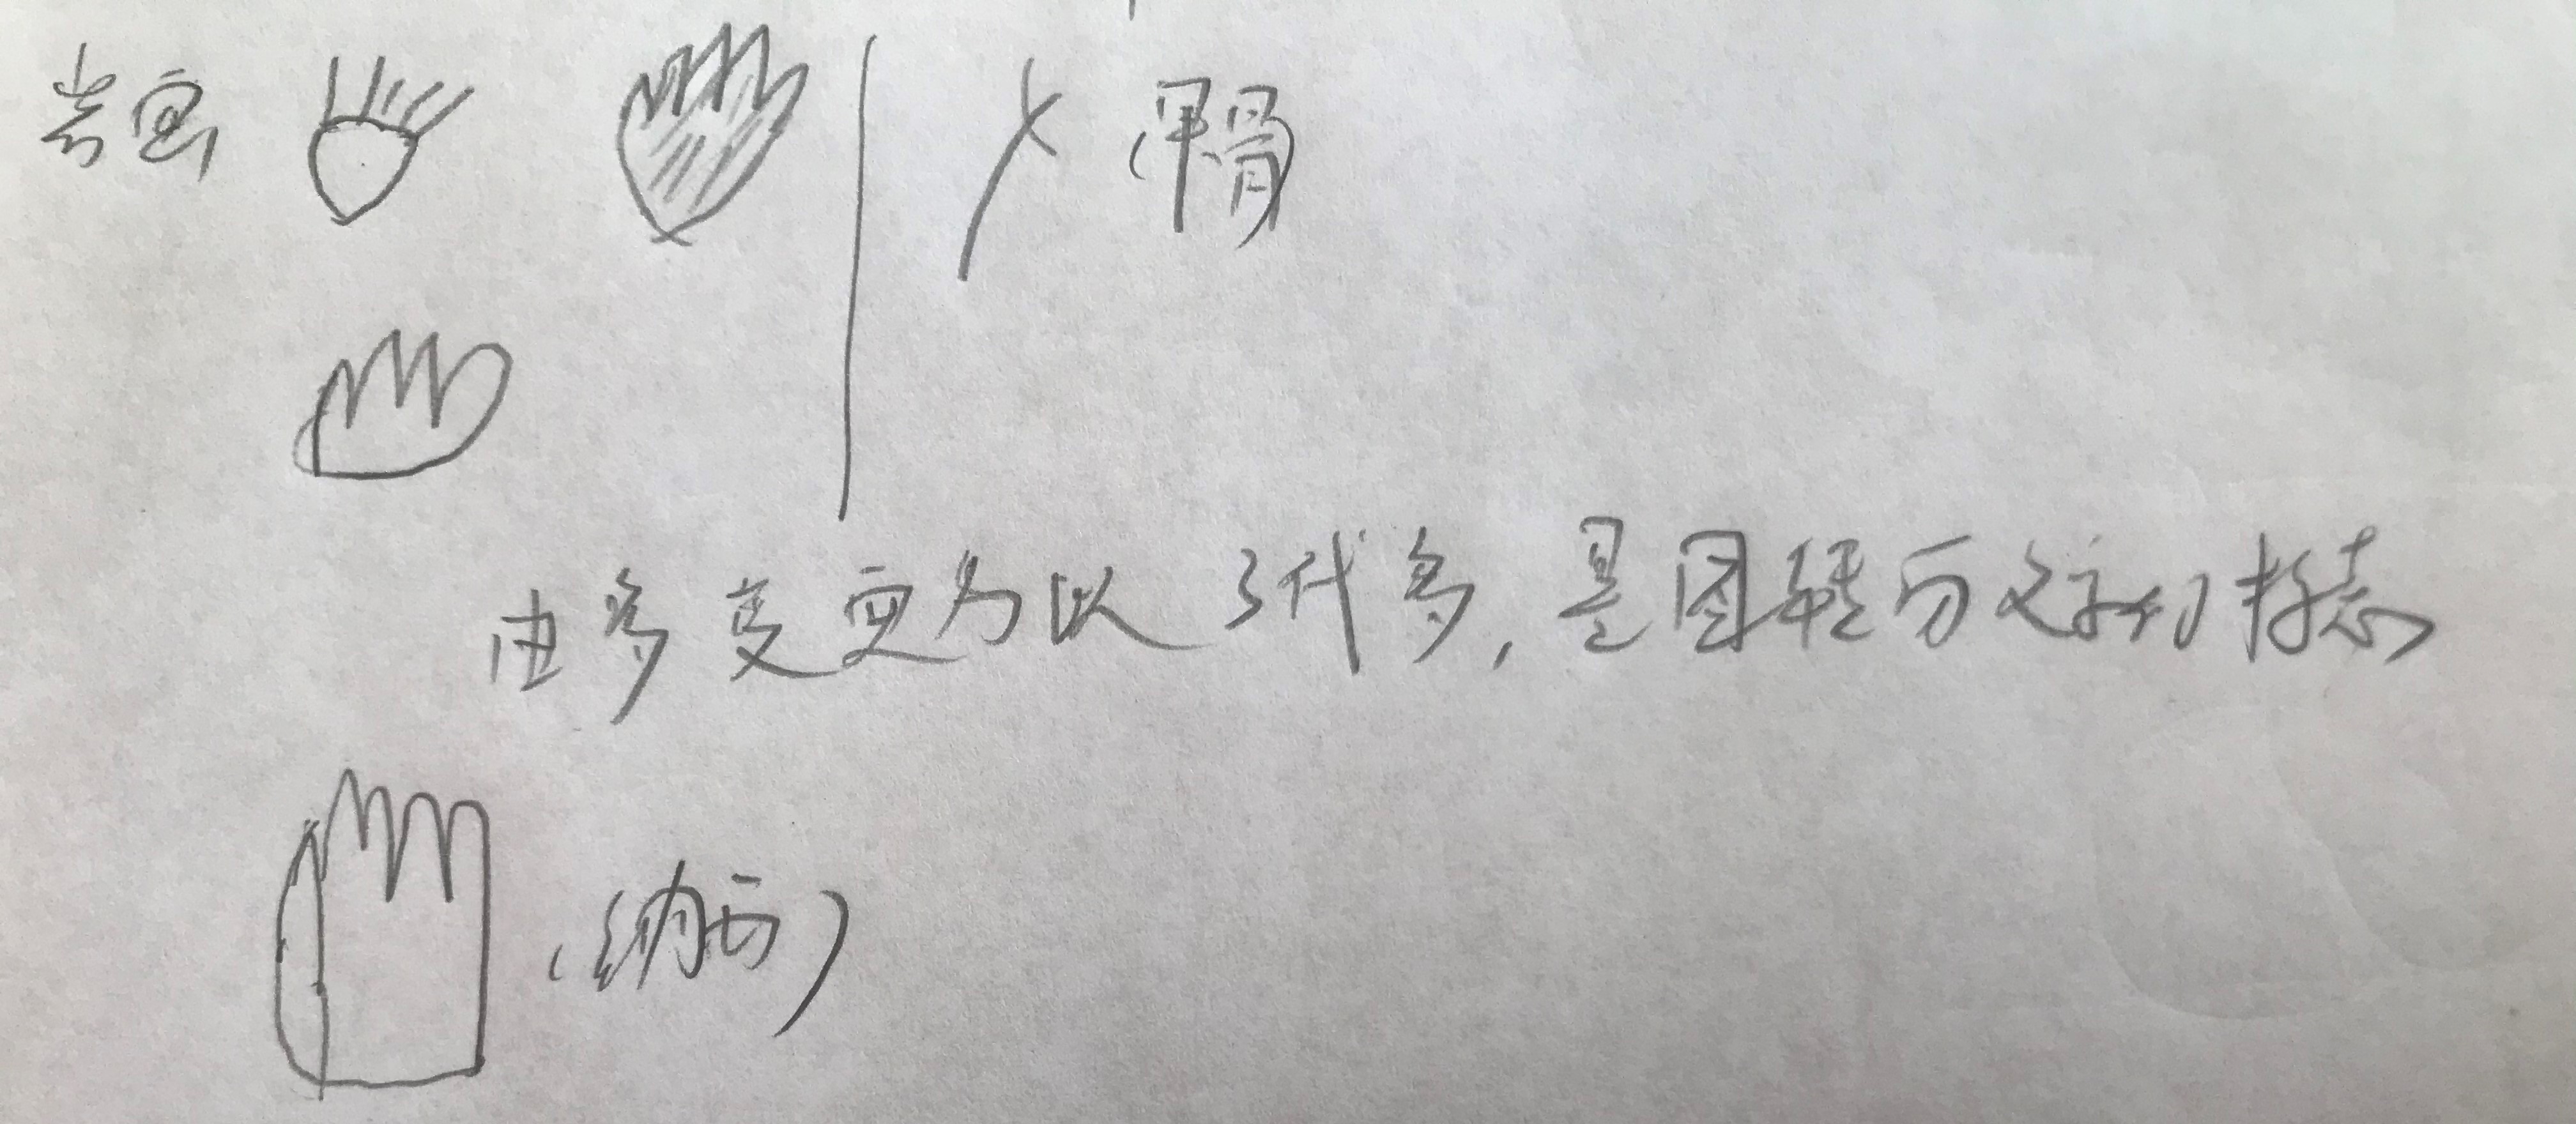 岩画
(甲骨)
由多变更为以3代多,是图转为文字的标志
(纳西)